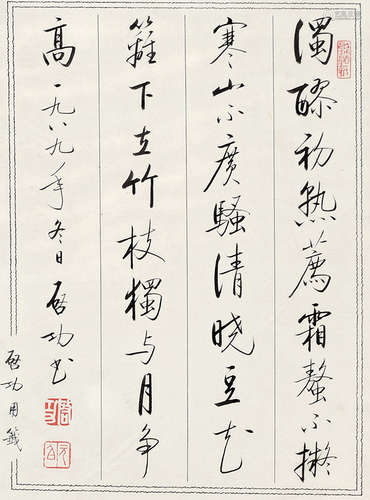 浊醪初熟荐霜螯不拟
寒山不广骚清晓豆花
篱下立竹枝独与月争
高一九八九年冬日启功书
启功用笺